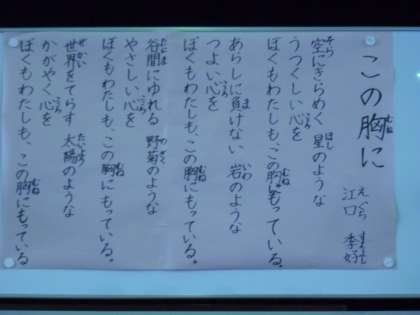 この胸に
江口 季好
空にきらめく 星のような
うつくしい心を
ぼくもわたしも、この胸にもっている。
あらしに負けない 岩のような
つよい心を
ぼくもわたしも、この胸にもっている。
谷間にゆれる 野菊のような
やさしい心を
ぼくもわたしも、この胸にもっている。
世界をてらす 太陽のような
かがやく心を
ぼくもわたしも、この胸にもっている